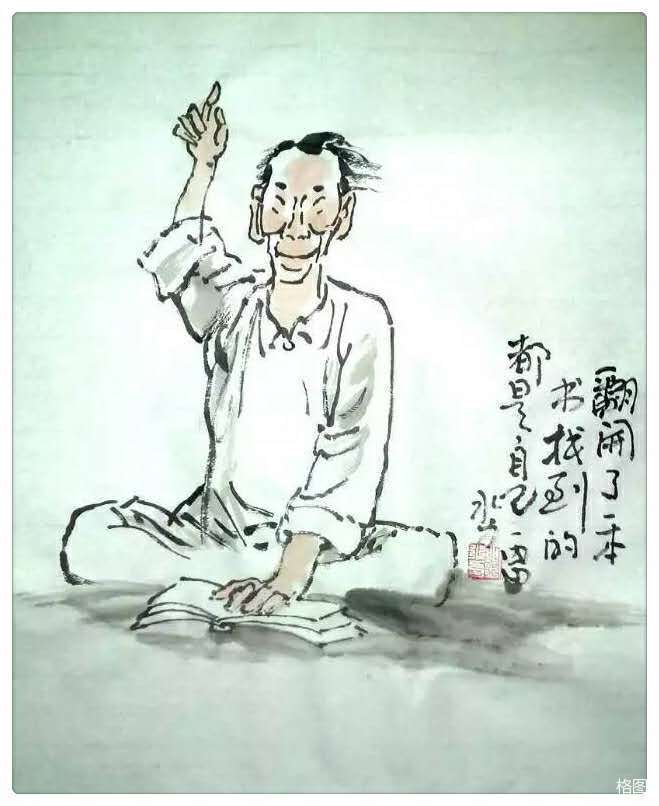 翻開了一本
书找到的
都是自己
格图